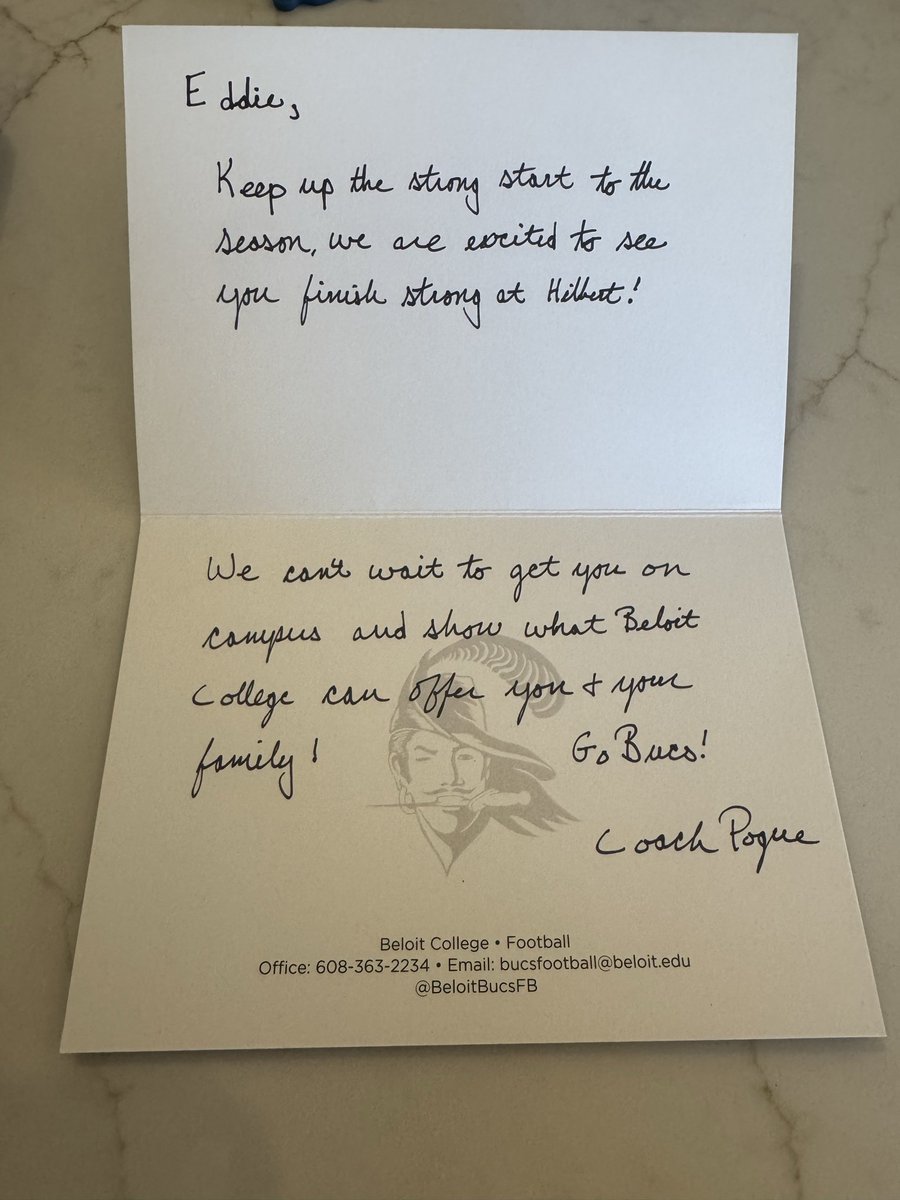 Eddie,
Keep up the strong start to the
season, we are excited to see
you finish strong at Hilbert!
We can't wait to get you on
campus and show what Beloit
College can offer you & your
family! Go Bucs!
Coach Pogue
Beloit College • Football
Office: 608-363-2234 • Email: bucsfootball@beloit.edu
@BeloitBucsFB